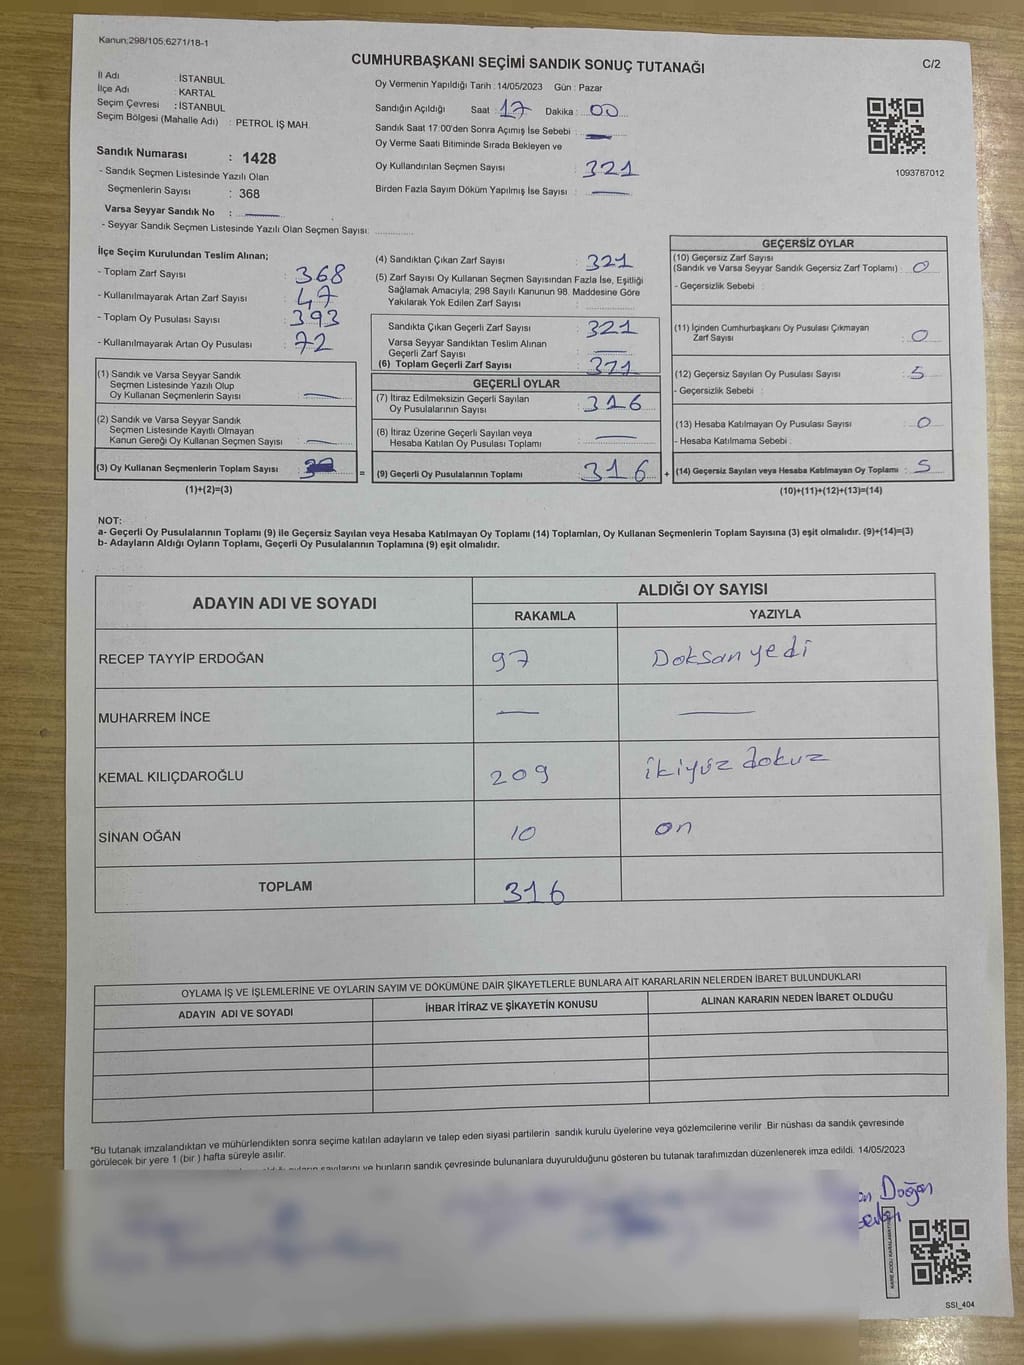 Kanun;298/105;6271/18-1
CUMHURBAŞKANI SEÇİMİ SANDIK SONUÇ TUTANAĞI
C/2
İl Adı : İSTANBUL
İlçe Adı : KARTAL
Seçim Çevresi : İSTANBUL
Seçim Bölgesi (Mahalle Adı) : PETROL İŞ MAH.
Oy Vermenin Yapıldığı Tarih : 14/05/2023 Gün : Pazar
Sandığın Açıldığı Saat : 17 Dakika : 00
Sandık Saat 17:00'den Sonra Açımış İse Sebebi : —
Oy Verme Saati Bitiminde Sırada Bekleyen ve
Oy Kullandırılan Seçmen Sayısı : 321
Birden Fazla Sayım Döküm Yapılmış İse Sayısı : —
1093787012
Sandık Numarası : 1428
- Sandık Seçmen Listesinde Yazılı Olan
Seçmenlerin Sayısı : 368
Varsa Seyyar Sandık No : —
- Seyyar Sandık Seçmen Listesinde Yazılı Olan Seçmen Sayısı:
İlçe Seçim Kurulundan Teslim Alınan;
- Toplam Zarf Sayısı : 368
- Kullanılmayarak Artan Zarf Sayısı : 47
- Toplam Oy Pusulası Sayısı : 393
- Kullanılmayarak Artan Oy Pusulası : 72
(1) Sandık ve Varsa Seyyar Sandık
Seçmen Listesinde Yazılı Olup
Oy Kullanan Seçmenlerin Sayısı : —
(2) Sandık ve Varsa Seyyar Sandık
Seçmen Listesinde Kayıtlı Olmayan
Kanun Gereği Oy Kullanan Seçmen Sayısı : —
(3) Oy Kullanan Seçmenlerin Toplam Sayısı :
(1)+(2)=(3)
(4) Sandıktan Çıkan Zarf Sayısı : 321
(5) Zarf Sayısı Oy Kullanan Seçmen Sayısından Fazla İse, Eşitliği
Sağlamak Amacıyla; 298 Sayılı Kanunun 98. Maddesine Göre
Yakılarak Yok Edilen Zarf Sayısı :
Sandıkta Çıkan Geçerli Zarf Sayısı : 321
Varsa Seyyar Sandıktan Teslim Alınan
Geçerli Zarf Sayısı : —
(6) Toplam Geçerli Zarf Sayısı : 321
GEÇERLİ OYLAR
(7) İtiraz Edilmeksizin Geçerli Sayılan
Oy Pusulalarının Sayısı : 316
(8) İtiraz Üzerine Geçerli Sayılan veya
Hesaba Katılan Oy Pusulası Toplamı : —
= (9) Geçerli Oy Pusulalarının Toplamı : 316
GEÇERSİZ OYLAR
(10) Geçersiz Zarf Sayısı
(Sandık ve Varsa Seyyar Sandık Geçersiz Zarf Toplamı) : 0
- Geçersizlik Sebebi :
(11) İçinden Cumhurbaşkanı Oy Pusulası Çıkmayan
Zarf Sayısı : 0
(12) Geçersiz Sayılan Oy Pusulası Sayısı : 5
- Geçersizlik Sebebi :
(13) Hesaba Katılmayan Oy Pusulası Sayısı : 0
- Hesaba Katılmama Sebebi :
+ (14) Geçersiz Sayılan veya Hesaba Katılmayan Oy Toplamı : 5
(10)+(11)+(12)+(13)=(14)
NOT:
a- Geçerli Oy Pusulalarının Toplamı (9) ile Geçersiz Sayılan veya Hesaba Katılmayan Oy Toplamı (14) Toplamları, Oy Kullanan Seçmenlerin Toplam Sayısına (3) eşit olmalıdır. (9)+(14)=(3)
b- Adayların Aldığı Oyların Toplamı, Geçerli Oy Pusulalarının Toplamına (9) eşit olmalıdır.
ADAYIN ADI VE SOYADI
ALDIĞI OY SAYISI
RAKAMLA YAZIYLA
RECEP TAYYİP ERDOĞAN 97 Doksan yedi
MUHARREM İNCE — —
KEMAL KILIÇDAROĞLU 209 ikiyüz dokuz
SİNAN OĞAN 10 on
TOPLAM 316
OYLAMA İŞ VE İŞLEMLERİNE VE OYLARIN SAYIM VE DÖKÜMÜNE DAİR ŞİKAYETLERLE BUNLARA AİT KARARLARIN NELERDEN İBARET BULUNDUKLARI
ADAYIN ADI VE SOYADI İHBAR İTİRAZ VE ŞİKAYETİN KONUSU ALINAN KARARIN NEDEN İBARET OLDUĞU
*Bu tutanak imzalandıktan ve mühürlendikten sonra seçime katılan adayların ve talep eden siyasi partilerin sandık kurulu üyelerine veya gözlemcilerine verilir. Bir nüshası da sandık çevresinde
görülecek bir yere 1 (bir ) hafta süreyle asılır.
sayılarını ve bunların sandık çevresinde bulunanlara duyurulduğunu gösteren bu tutanak tarafımızdan düzenlenerek imza edildi. 14/05/2023
Doğan
KARE KODU KARALAMAYINIZ
SSI_404